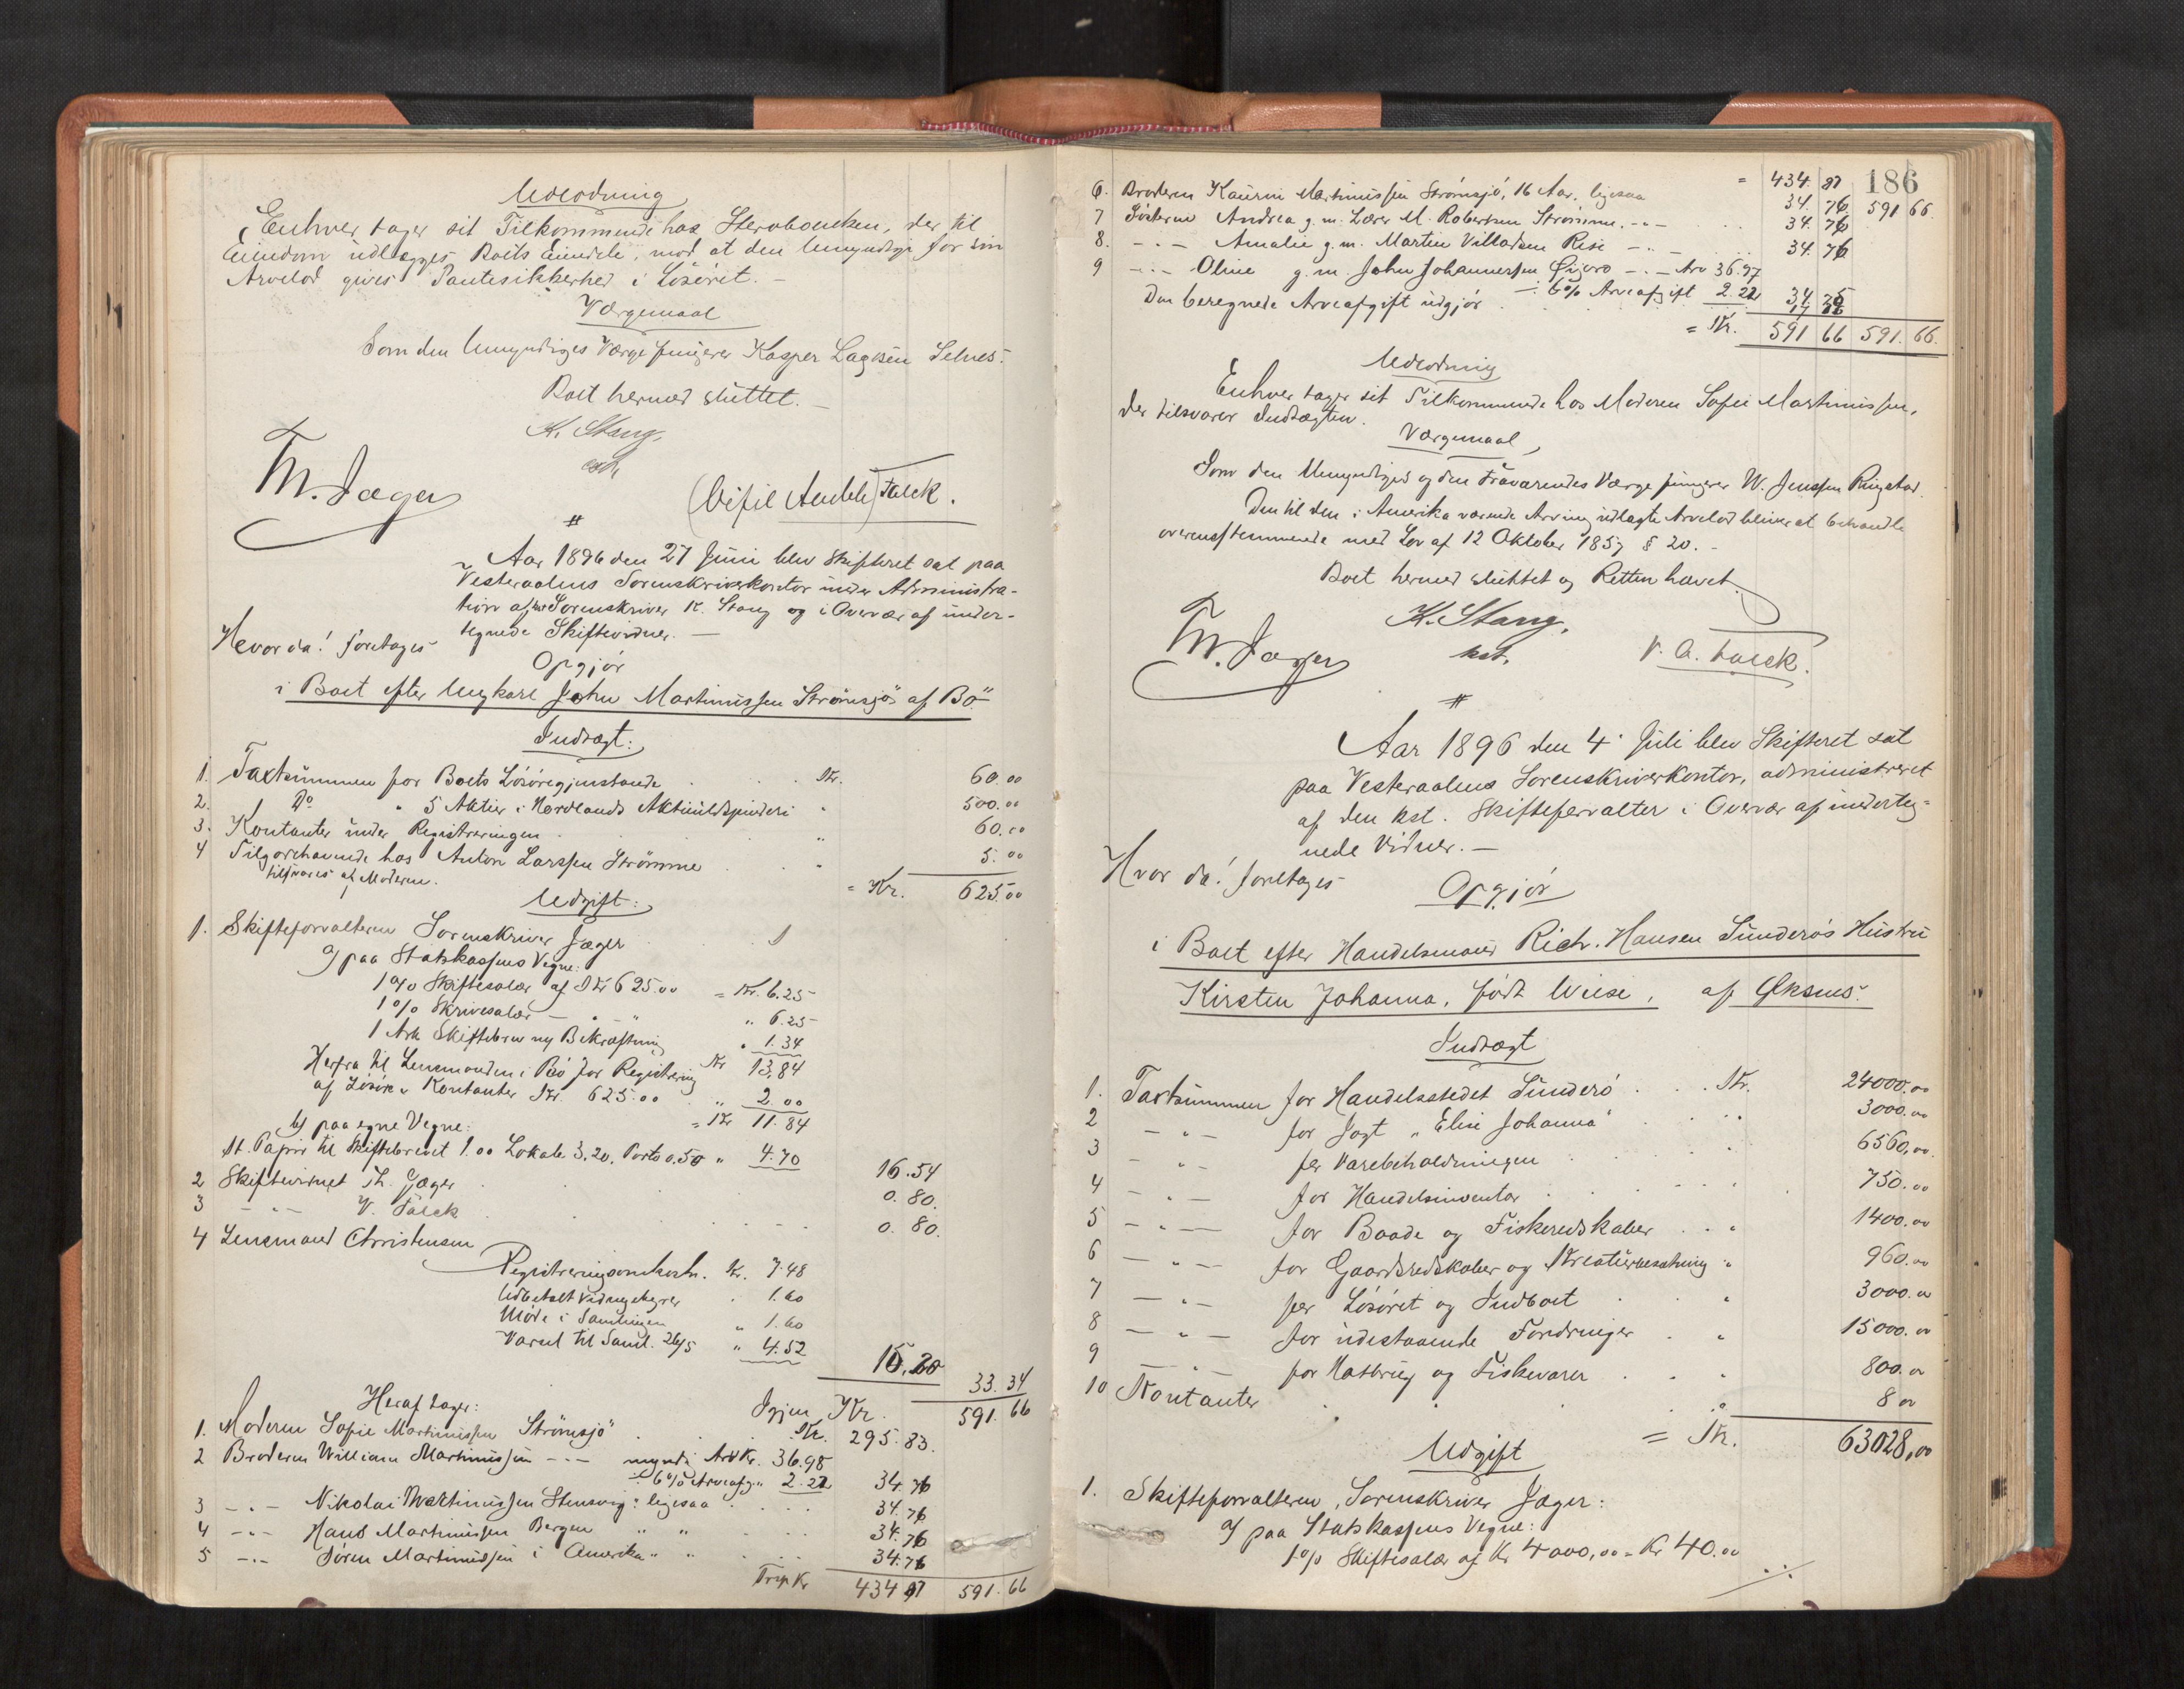 Udlodning
Enhver tager sit Tilkommende hos Stervboenken, der til
Eiendom udlægges Boets Eiendele, mod at den Umyndige for sin
Arvelod gives Pantesikkerhed i Løsøret. —
Værgemaal
Som den Umyndiges Værge fungerer Kasper Lagesen Selnes.
Boet hermed sluttet. —
K. Stang,
cst,
Th. Jæger
Falck.
#
Aar 1896 den 27 Juni blev Skifteret sat paa
Vesteraalens Sorenskriverkontor under Administra-
tion af kst Sorenskriver K. Stang og i Overvær af under-
tegnede Skiftevidner. —
Hvorda! foretages
Opgjør
i Boet efter Ungkarl John Martinussen Strømsjø af Bø
Indtægt:
1. Taxtsummen for Boets Løsøregjenstande . . . Kr. 60.00
2. Do " 5 Aktier i Nordlands Aktieuldspinderi " 500.00
3. Kontanter under Registreringen . . " 60.00
4 Tilgodehavende hos Anton Larssen Strømme . " 5.00
tilsvares af Moderen.
= Kr. 625.00
Udgift:
1. Skifteforvalteren Sorenskriver Jæger
a) paa Statskassens Vegne:
1 % Skiftesalær af Kr 625.00 = Kr. 6.25
1 % Skrivesalær — " — " " 6.25
1 Ark Skiftebrev og Bekræftning " 1.34
Kr 13.84
Herfra til Lensmanden i Bø for Registrering
af Løsøre & Kontanter Kr. 625.00 " 2.00
= Kr 11.84
b) paa egne Vegne:
St. Papir til Skiftebrevet 1.00 Lokale 3.20. Porto 0.50 " 4.70
16.54
2 Skiftevidnet Th. Jæger . 0.80.
3 — " — V. Falck . . . . 0.80.
4 Lensmand Christensen
Registreringsomkostn. Kr. 7.48
Udbetalt Vidnegebyrer " 1.60
Møde i Samlingen " 1.60
Varsel til Saml. 26/5 " 4.52
15.20
33.34
Igjen Kr. 591.66
Heraf tager:
1. Moderen Sofie Martinussen Strømsjø . . Kr. 295.83.
2 Broderen William Martinussen — " — myndig Arv Kr. 36.98
÷ 6 % Arveafg. " 2.22 34.76
3 — " — Nikolai Martinussen Stensvig: ligesaa . . . 34.76
4 — " — Hans Martinussen Bergen " " . . . 34.76
5 — " — Søren Martinussen i Amerika " " . . . 34.76
Trsp Kr 434 87 591.66
186
= 434. 87
591 66
6. Broderen Martinussen Strømsjø, 16 Aar, ligesaa 34. 76
7 Søsteren Andrea g. m. Lærer M. Robertsen Strømme. — " — 34. 76
8. — " — Amalie g. m. Martin Villadsen Rise — " — 34. 76
9 — " — Oline g. m. John Johannessen Øijoro — " — Arv 36.97
÷ 6% Arveafgift 2.22 34. 75
Den beregnede Arveafgift udgjør . . . 17 76
= Kr. 591 66 591. 66.
Udlodning
Enhver tager sit Tilkommende hos Moderen Sofie Martinussen,
der tilsvarer Indtægten.
Værgemaal
Som den Umyndiges og den Fraværendes Værge fungerer W. Jenssen Ringstad.
Den til den i Amerika værende Arving udlagte Arvelod bliver at behandle
overensstemmende med Lov af 12 Oktober 1857 § 20. —
Boet hermed sluttet og Retten hævet.
K. Stang,
kst.
Th. Jæger
V. A. Falck.
#
Aar 1896 den 4' Juli blev Skifteret sat
paa Vesteraalens Sorenskriverkontor, administreret
af den kst. Skifteforvalter i Overvær af underteg=
nede Vidner. —
Hvor da! foretages
Opgjør
i Boet efter Handelsmand Rich. Hansen Sunderøs Hustru
Kirsten Johanna, født Wiese, af Øksnes.
Indtægt
1. Taxtsummen for Handelsstedet Sunderø . . . Kr. 24000.00
2 — " — for Jagt "Elise Johanna" . . . 3000.00
3 — " — for Varebeholdningen . . . 6560.00
4 — " — for Handelsinventar . . . 750.00
5 — " — for Baade og Fiskeredskaber . . " 1400.00
6 — " — for Gaardsredskaber og Kreaturbesætning " 960.00
7 — " — for Løsøret og Indboet . . " 3000.00
8 — " — for udestaaende Fordringer . " 15000.00
9 — " — for Matbrug og Fiskevarer . . " 800.00
10 Kontanter . . . . " 8 00
= Kr. 63028,00
Udgift
1. Skifteforvalteren, Sorenskriver Jæger:
a) paa Statskassens Vegne:
1 % Skiftesalær af Kr 4000,00 = Kr 40.00